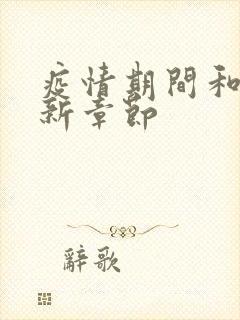 疫情期間和
新章節
辭歌